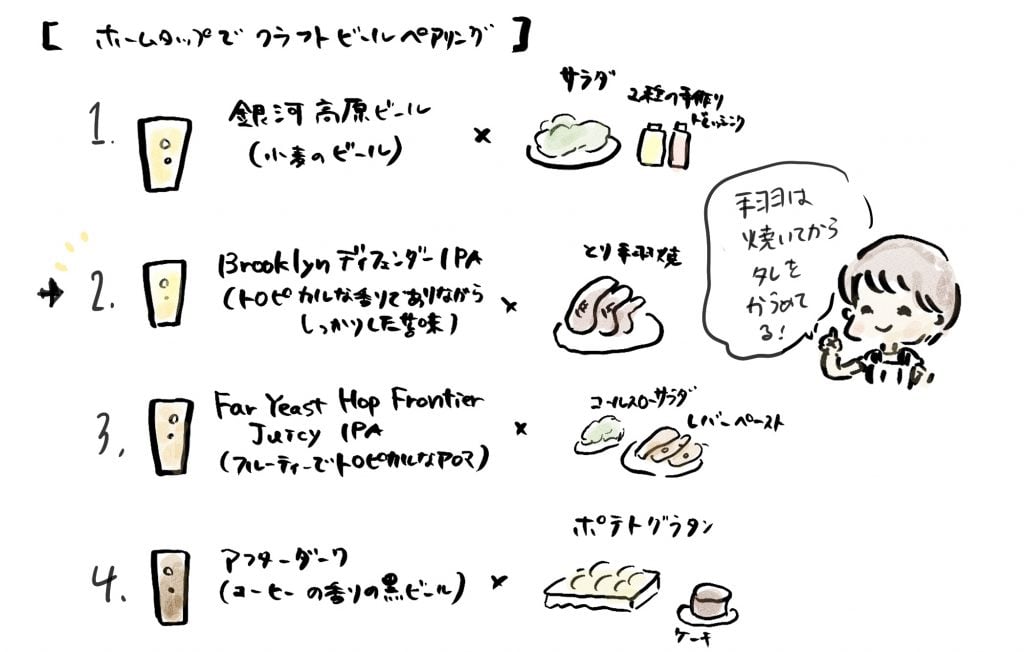 [ ホームタップで クラフトビールペアリング ]
1. 銀河高原ビール ×
(小麦のビール)
サラダ
2種の手作り
ドレッシング
→ 2. Brooklyn ディフェンダーIPA ×
(トロピカルな香りでありながら
しっかりした苦味)
とり手羽焼
手羽は
焼いてから
タレを
からめて
る!
3. Far Yeast Hop Frontier ×
Juicy IPA
(フルーティーでトロピカルなアロマ)
コールスローサラダ
レバーペースト
4. アフターダーク ×
(コーヒーの香りの黒ビール)
ポテトグラタン
ケーキ